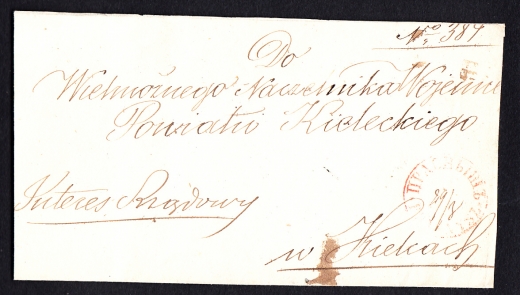 No 387
Do
Wielmożnego Naczelnika Wojenne
Powiatu Kieleckiego
Interes Rządowy
29/3
w Kielcach